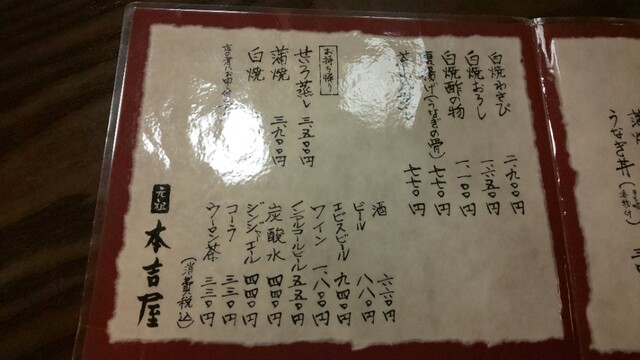 蒲焼
うなぎ丼
白焼わさび 二、九〇〇円
白焼おろし 一、六五〇円
白焼酢の物 一、一〇〇円
唐揚げ(うなぎの骨) 七七〇円
七七〇円
酒 六六〇円
ビール 八八〇円
エビスビール 九四〇円
ワイン 一、八〇〇円
ノンアルコールビール 五五〇円
炭酸水 四四〇円
ジンジャエール 四四〇円
コーラ 三三〇円
ウーロン茶 三三〇円
(消費税込)
お持ち帰り
せいろ蒸し 三、五〇〇円
蒲焼 三、九〇〇円
白焼
元祖 本吉屋